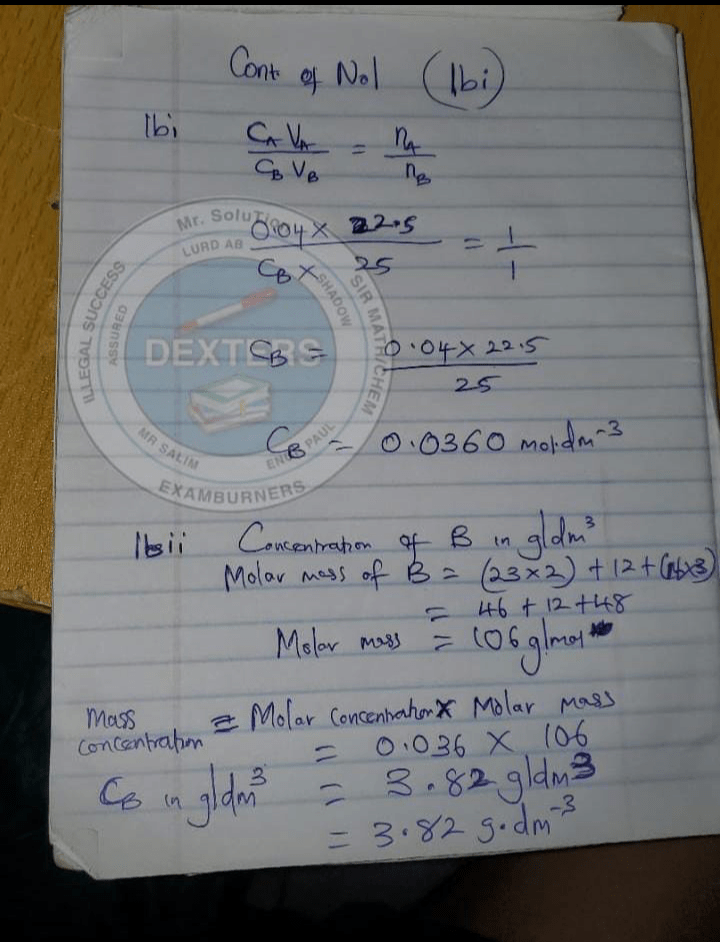 Cont of No1 (1bi)
1bi CA VA / CB VB = nA / nB
0.04 × 22.5 / CB × 25 = 1 / 1
CB = 0.04 × 22.5 / 25
CB = 0.0360 mol.dm⁻³
1bii Concentration of B in g/dm³
Molar mass of B = (23×2) + 12 + (16×3)
= 46 + 12 + 48
Molar mass = 106 g/mol
Mass concentration = Molar Concentration × Molar mass
= 0.036 × 106
CB in g/dm³ = 3.82 g/dm3
= 3.82 g.dm⁻³
Mr. Solution
LURD AB
ILLEGAL SUCCESS
ASSURED
SHADOW
SIR MATH/CHEM
DEXTERS
MR SALIM
PAUL
EXAMBURNERS